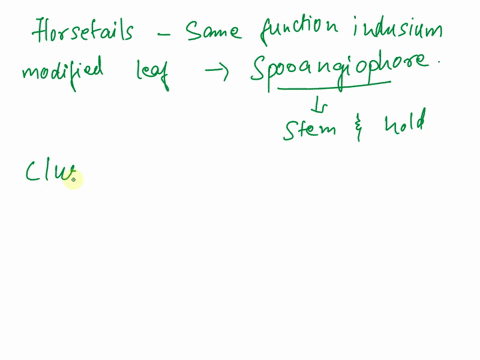 Horsetails - Same function indusium
modified leaf → Spooangiophore.
↓
Stem & hold
Clu